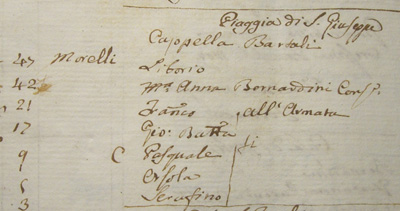 Piaggia di S. Giuseppe
Cappella Bartali
47 Morelli Liborio
42 Mª Anna Bernaddini Cons.
21 Franc.º all'Armata
17 Gio: Batta
9 C Pasquale fi
6 Orsola
3 Serafino